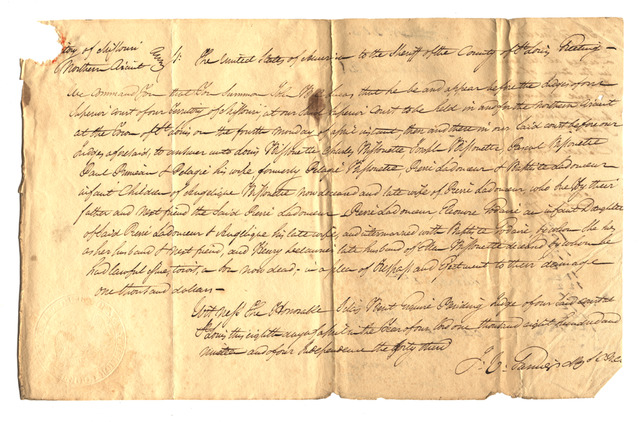 tory of Missouri
Northern Circuit Sct. The United States of America to the Sheriff of the County of St Louis Greeting
We Command You that You Summon John that he be and appear before the Judges of our
Superior Court of our Territory of Missouri, at our said Superior Court to be held in and for the Northern Circuit
at the Town of St Louis on the fourth Monday of April instant then and there in our said Court before our
Judges aforesaid, to answer unto Louis Bissonette Charles Bissonette Joseph Bissonette Daniel Bissonette
Paul Primeau & Pelagie his wife, formerly Pelagie Bissonette René Ladouceur & Baptiste Ladouceur
infant Children of Angelique Bissonette now deceased and late wife of René Ladouceur, who by their
father and next friend the said René Ladouceur, René Ladouceur an infant Daughter
of said René Ladouceur & Angelique his late wife, and intermarried with Baptiste by whom she
as her husband & next friend, and Henry late husband of Bissonette deceased by whom he
had lawful issue, towit, a son now dead - in a plea of Trespass and Ejectment to their damage
one thousand dollars -
Witness the Honorable Silas Bent Presiding Judge of our said Court at
St Louis this eighth day of April in the Year of our lord one thousand eight hundred and
nineteen and of our Independence the forty third